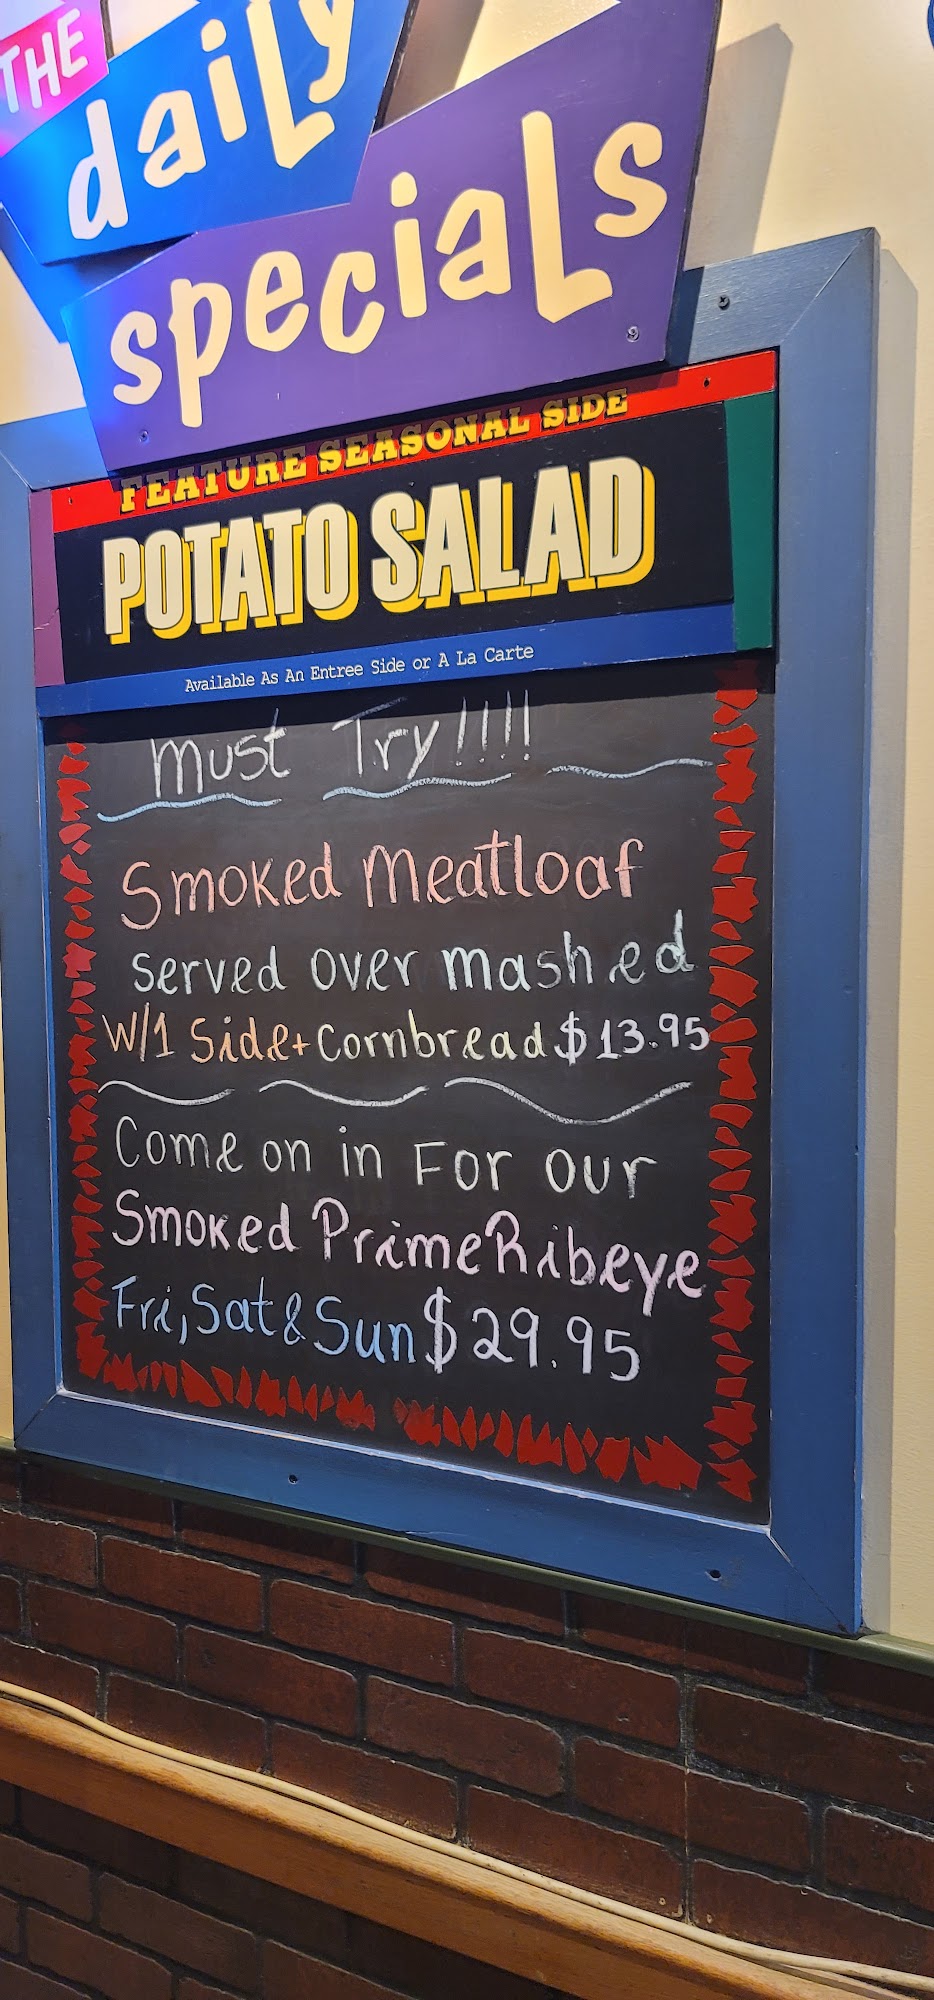 THE
daily
specials
FEATURE SEASONAL SIDE
POTATO SALAD
Available As An Entree Side or A La Carte
Must Try!!!!
Smoked Meatloaf
Served over mashed
W/1 Side+Cornbread $13.95
Come on in For our
Smoked Prime Ribeye
Fri, Sat & Sun $29.95